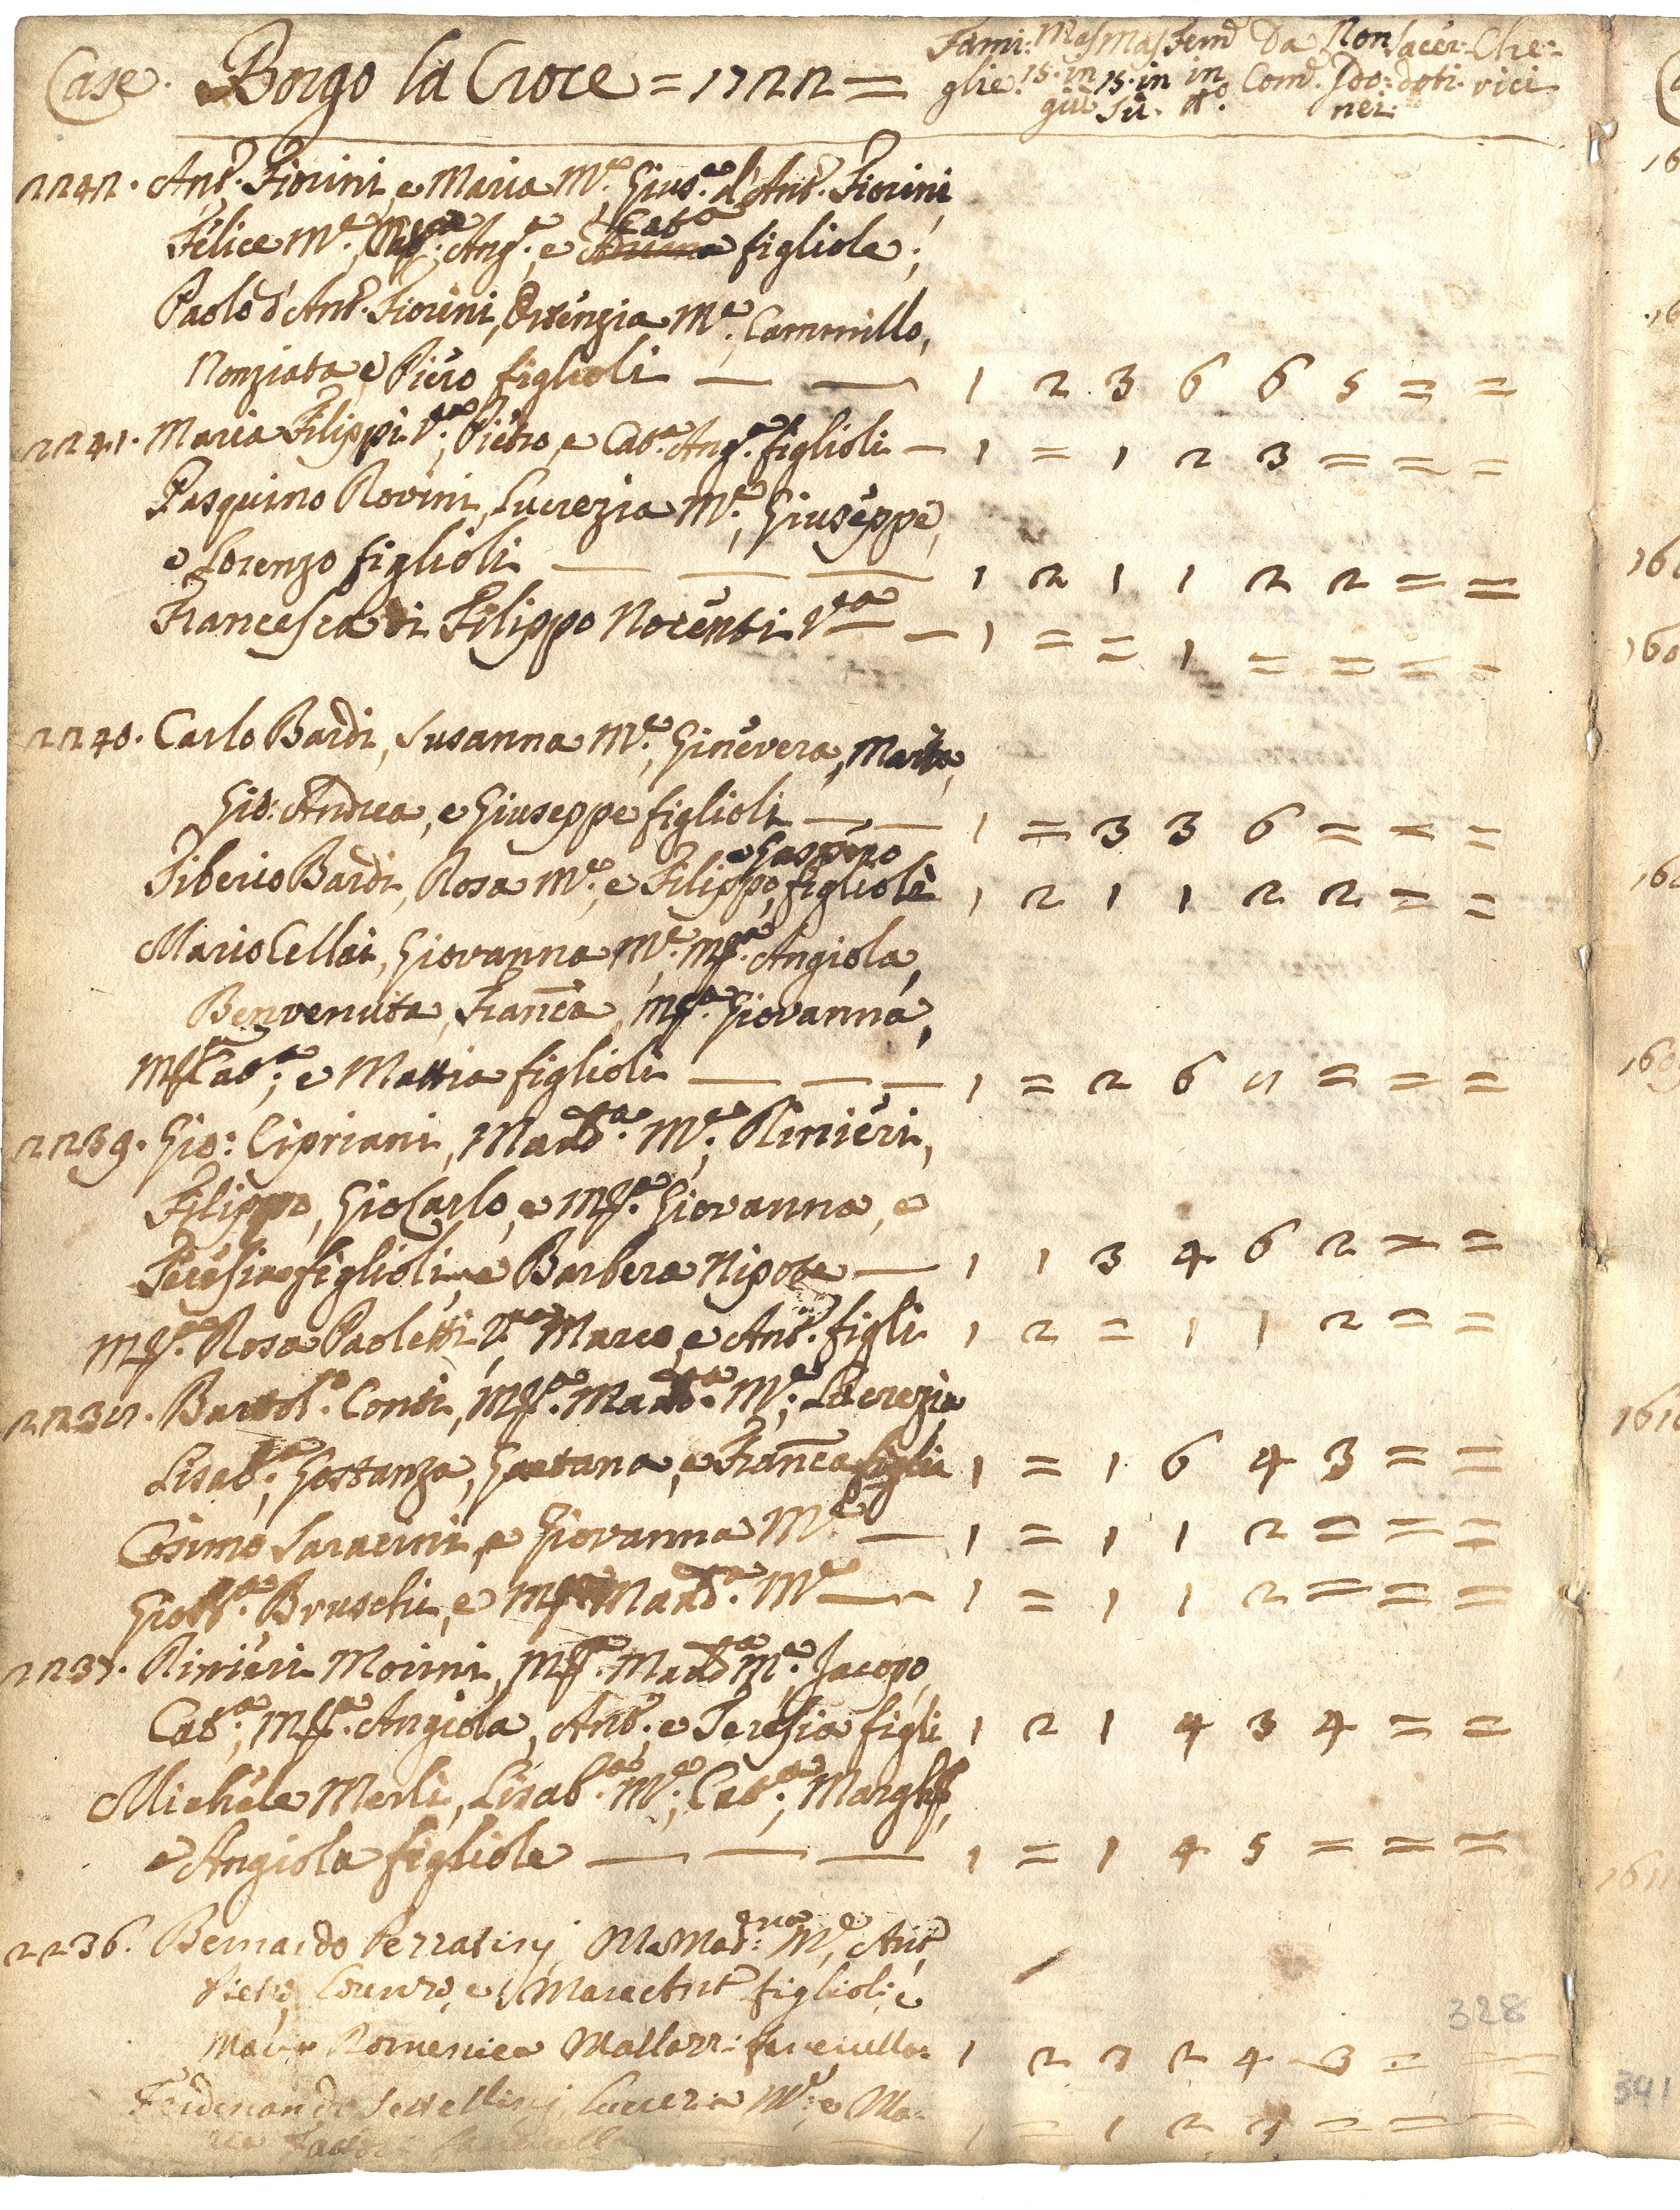 Case. Borgo la Croce = 1722 =
Fami: Mas Mas Femᵉ Da Non Sacer- Che-
glie. 15. in 15. in in Comᵉ. Ido: doti. rici
giù Sù. ttº. nei:
2242. Antº. Fiorini, e Maria Mᵉ. Giusᵉ. d'Antº. Fiorini,
Felice Mᵉ. Angᵃ., e Catᵃ figliole;
Paolo d'Antº. Fiorini, Orsenzia Mᵉ., Cammillo,
Nonziata e Piero figlioli — — 1 2 3 6 6 5 = =
2241. Maria Filippi Vᵃ; Pietro, e Catᵃ. Angᵃ. figlioli — 1 = 1 2 3 = = =
Pasquino Rovini, Lucrezia Mᵉ., Giuseppe,
e Lorenzo figlioli — — — 1 2 1 1 2 2 = =
Francesca di Filippo Nocenti Vᵃ — 1 = = 1 = = = =
2240. Carlo Bardi, Susanna Mᵉ., Ginevera, Marta,
Gio: Andrea, e Giuseppe figlioli — — 1 = 3 3 6 = = =
e Gaspero
Tiberio Bardi, Rosa Mᵉ., e Filippo, figliole 1 2 1 1 2 2 = =
Mario Cellai, Giovanna Mᵉ. Mᵃ. Angiola,
Benvenuta, Franca, Mᵃ. Giovanna,
Mᵃ Catᵃ; e Mattia figlioli — — — 1 = 2 6 8 = = =
2239. Gio: Cipriani, Madᵃ. Mᵉ; Rinieri,
Filippo, Gio Carlo, e Mᵃ. Giovanna, e
Teresia figlioli, e Barbera Nipote — 1 1 3 4 6 2 = =
Mᵃ. Rosa Paoletti Vᵃ Marco, e Antº. figli 1 2 = 1 1 2 = =
2238. Bartolº. Conti, Mᵃ. Madᵃ. Mᵉ; Lucrezia
Lisabᵃ; Gostanza, Gaetana, e Franca figlie 1 = 1 6 4 3 = =
Cosimo Saracini, e Giovanna Mᵉ — 1 = 1 1 2 = = =
Giobᵃ. Bruschi, e Mᵃ Madᵃ. Mᵉ — 1 = 1 1 2 = = =
2237. Rinieri Morini, Mᵃ. Madᵃ Mᵉ. Jacopo,
Catᵃ; Mᵃ. Angiola, Antº. e Teresia figli 1 2 1 4 3 4 = =
Michele Merli, Lisabᵃ. Mᵉ; Catᵃ; Margᵃ,
e Angiola figliole — — — 1 = 1 4 5 = = =
2236. Bernardo Mᵃ Madᵃ: Mᵉ, Antº
Pietro, Lorenzo, e Marc Antº figlioli, e
Maria Domenica 1 2 3 2 4 3 = =
Ferdinando Lucrezia Mᵉ; e Ma-
1 = 1 2 3 = = =
328
341